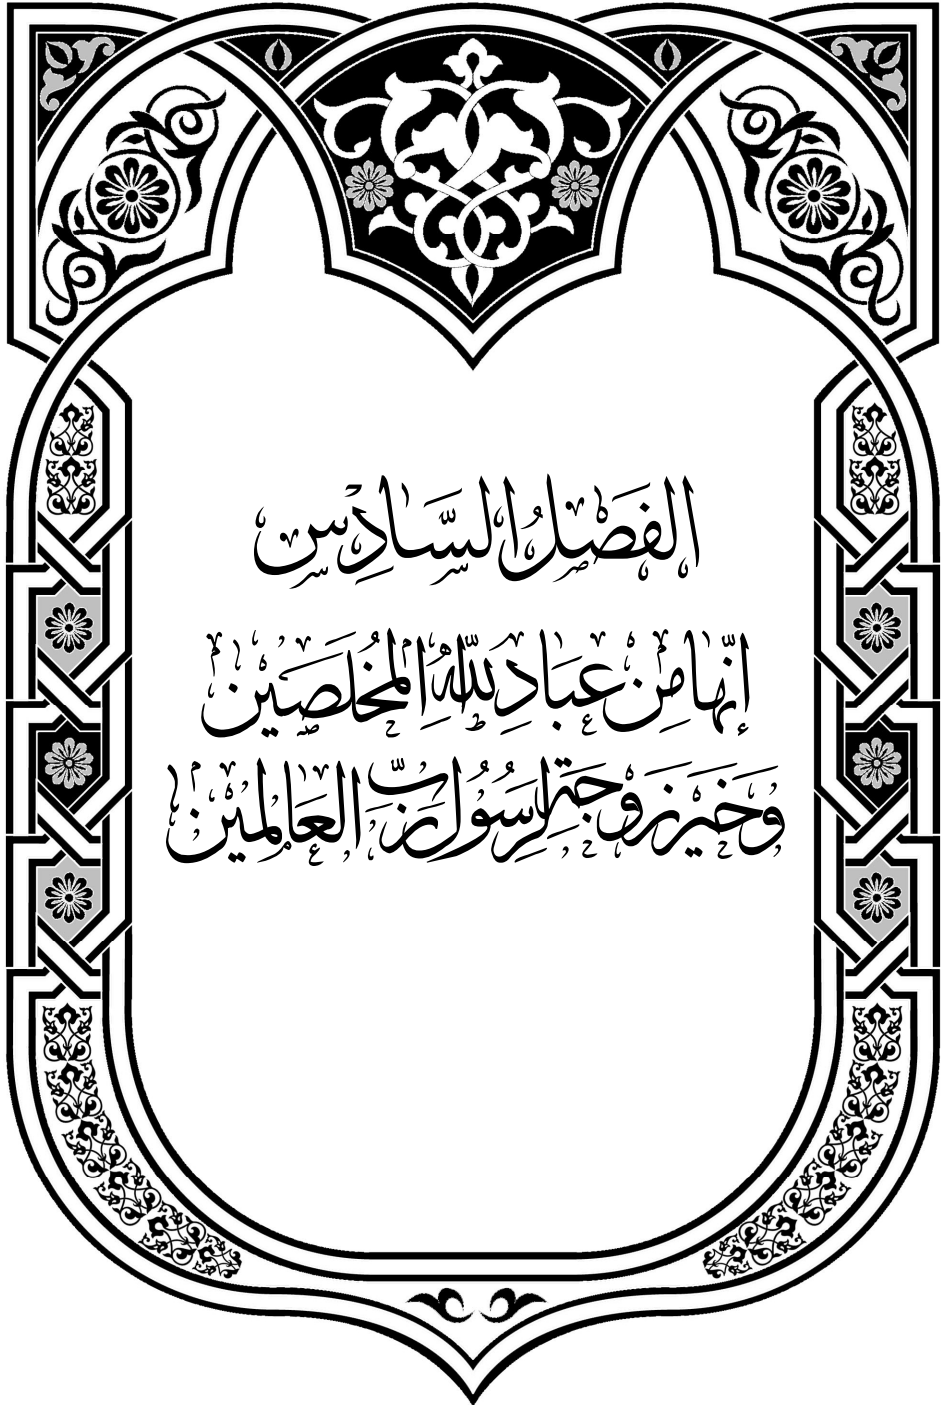 الفَصْلُ السَّادِس
إنّها مِن عِبَادِ اللهِ المُخلَصِين
وَخَيرَ زَوجَةٍ لِرسُول رَبّ العَالمِين